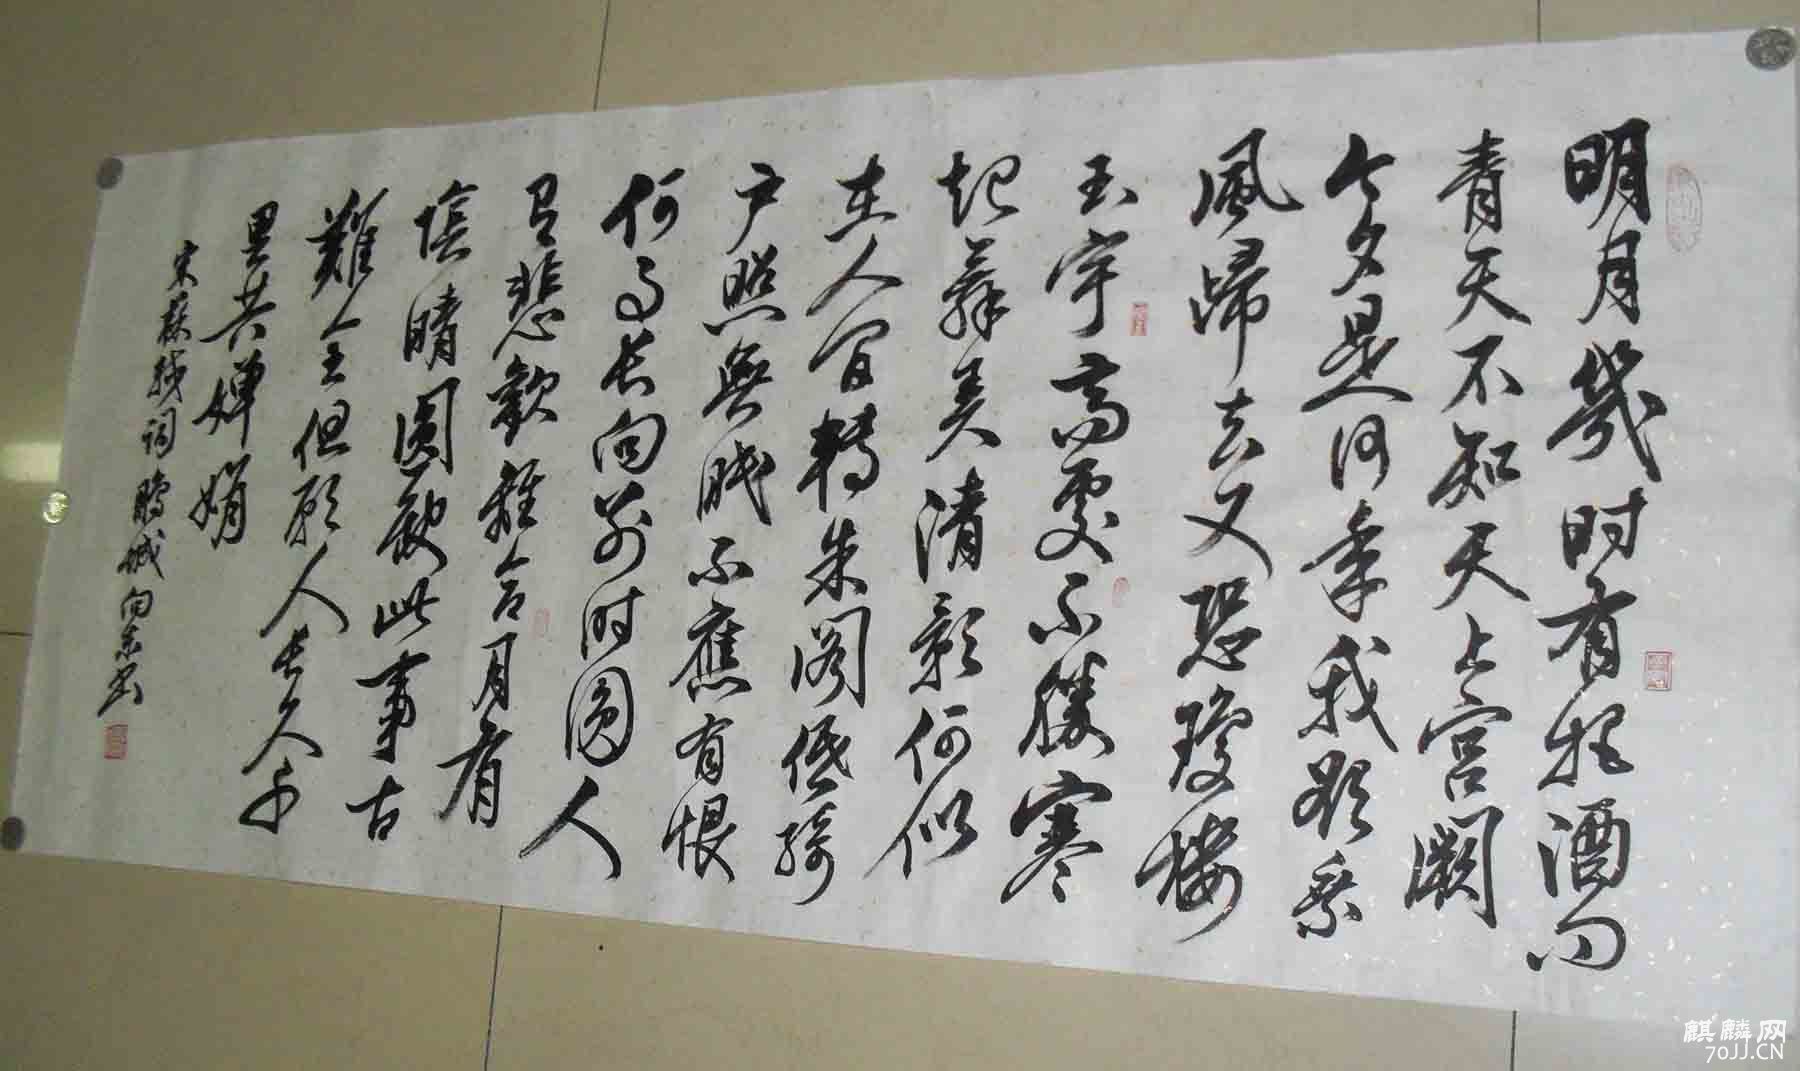 明月幾时有把酒问
青天不知天上宫闕
今夕是何年我欲乘
風歸去又恐瓊楼
玉宇高處不勝寒
起舞弄清影何似
在人间轉朱阁低绮
户照無眠不應有恨
何事长向别时圆人
有悲歡離合月有
陰晴圆缺此事古
難全但願人长久千
里共婵娟
宋蘇轼词 鵬城向东书
麒麟网
70JJ.CN